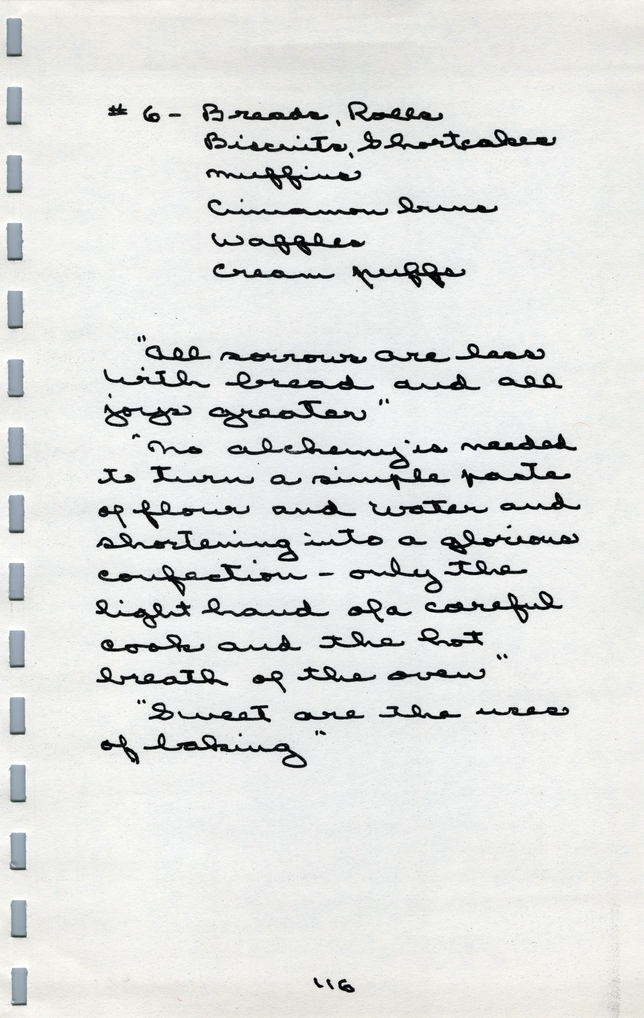 # 6 - Breads, Rolls
Biscuits, Shortcakes
Muffins
Cinnamon buns
Waffles
Cream puffs
"All sorrows are less
with bread and all
joys greater"
"No alchemy is needed
to turn a simple paste
of flour and water and
shortening into a glorious
confection - only the
light hand of a careful
cook and the hot
breath of the oven"
"Sweet are the uses
of baking"
116